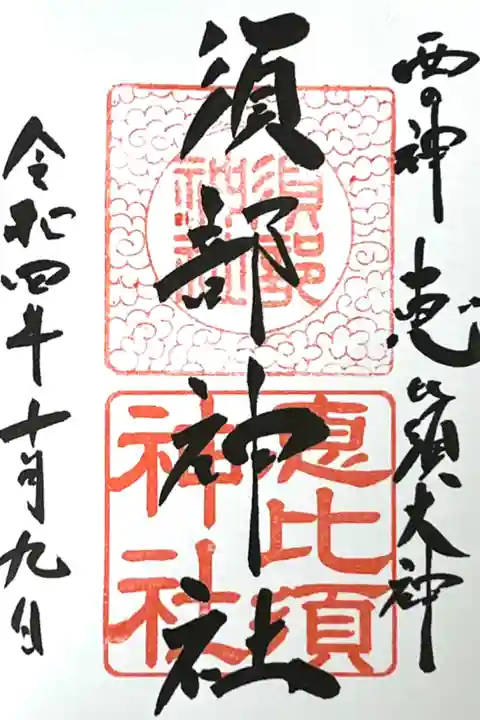 西の神 恵比須大神
須部神社
須部神社
恵比須神社
令和四年十月九日